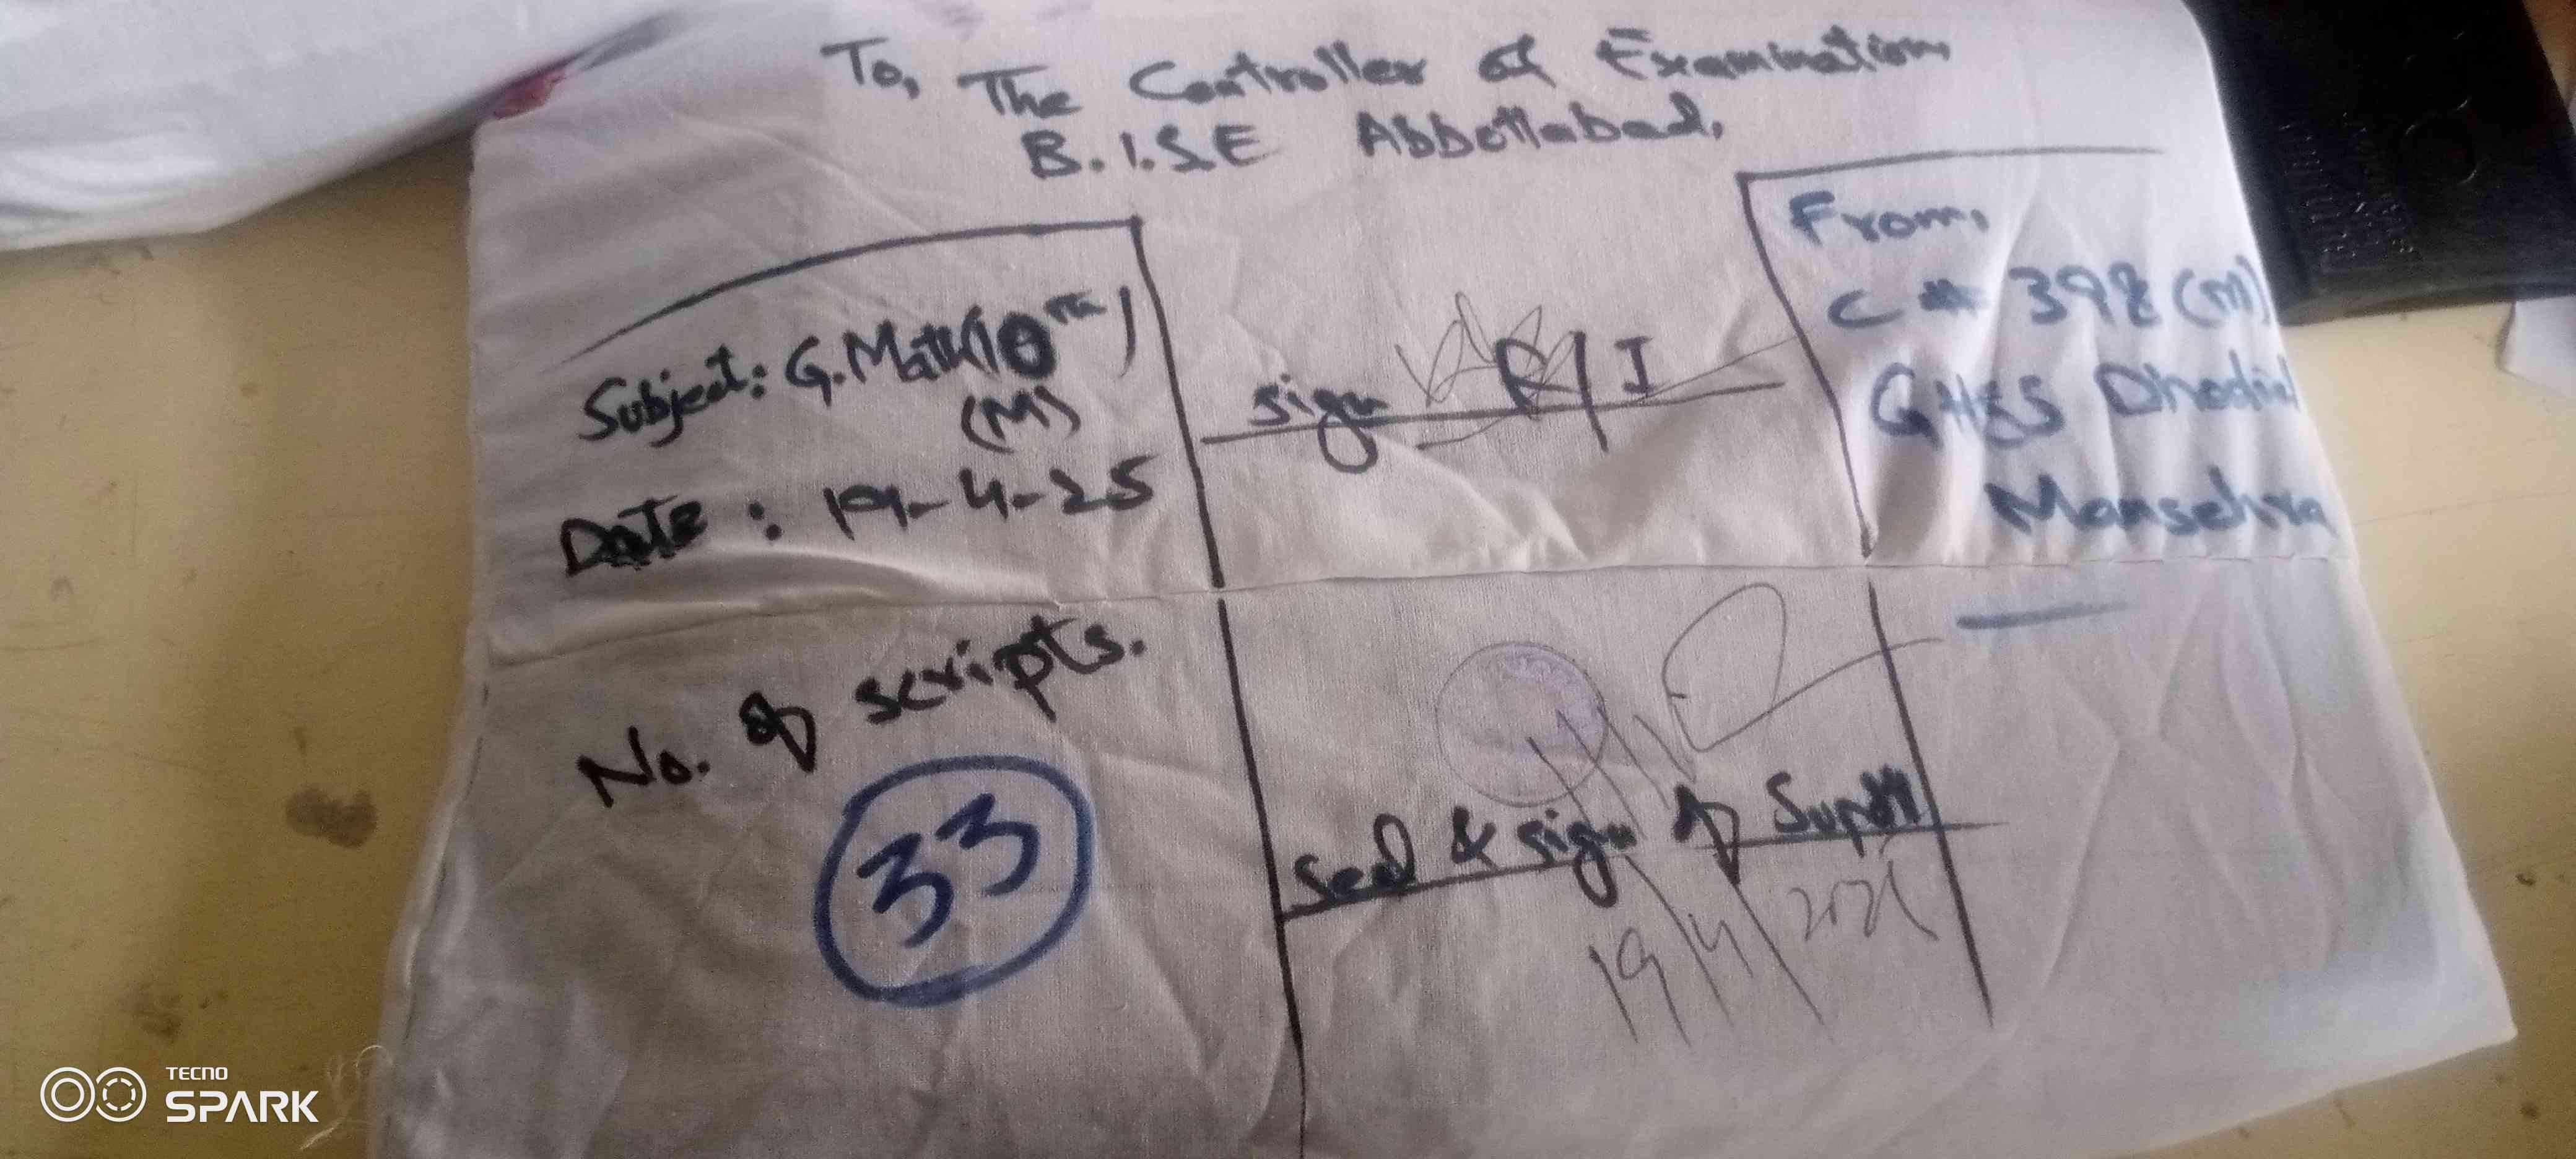 To, The Controller of Examination
B.I.S.E Abbottabad,
Subject: G.Math(10th)
(M)
Date : 19-4-25
sign R/I
From,
C# 398 (M)
GHSS Dhodial
Mansehra
No. of scripts.
33
Seal & sign of Supdtt
19/4/2025
TECNO
SPARK